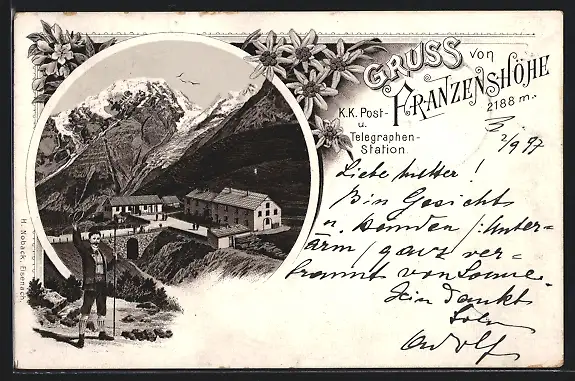 GRUSS von
FRANZENSHÖHE
2188 m.
K.K. Post-
u.
Telegraphen-
Station.
2/9 97
Liebe Mutter!
Bin Gesicht
u. Händen /: Unter-
ärm / ganz ver-
brannt von Sonne.
Dein dankb.
Sohn
Adolf
H. Noback, Eisenach.